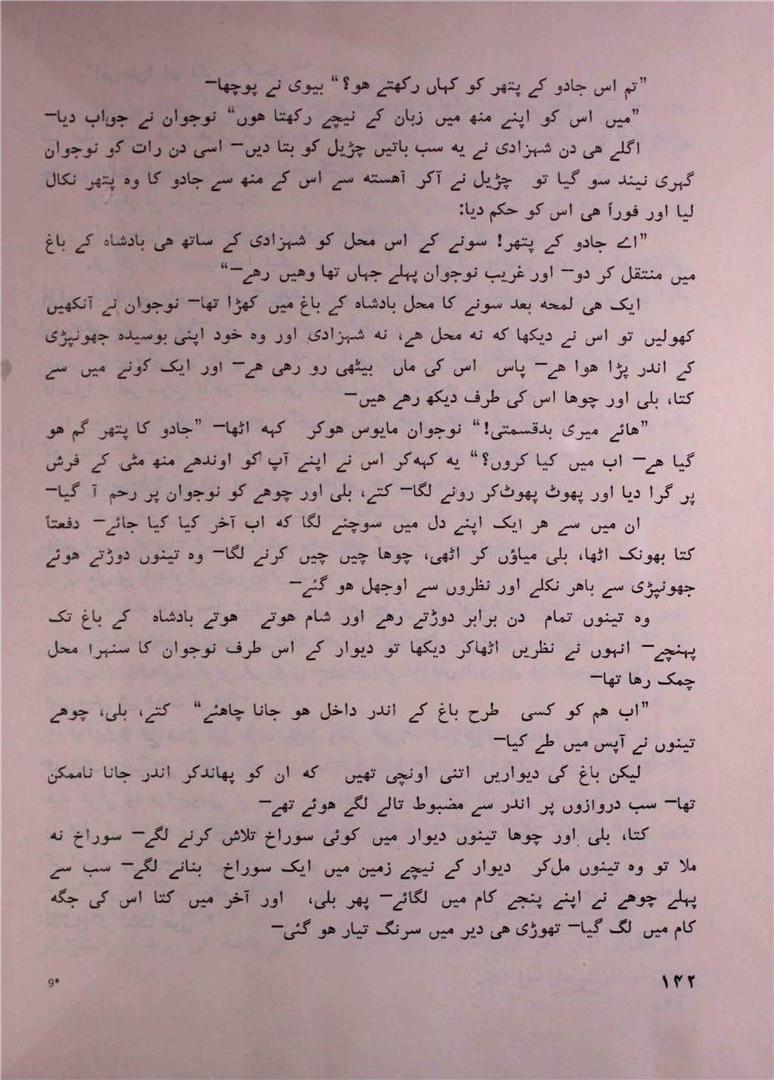 ”تم اس جادو کے پتھر کو کہاں رکھتے ھو؟“ بیوی نے پوچھا—
”میں اس کو اپنے منھ میں زبان کے نیچے رکھتا ھوں“ نوجوان نے جواب دیا—
اگلے ھی دن شہزادی نے یہ سب باتیں چڑیل کو بتا دیں— اسی دن رات کو نوجوان
گہری نیند سو گیا تو چڑیل نے آکر آھستہ سے اس کے منھ سے جادو کا وہ پتھر نکال
لیا اور فوراً ھی اس کو حکم دیا:
”اے جادو کے پتھر! سونے کے اس محل کو شہزادی کے ساتھ ھی بادشاہ کے باغ
میں منتقل کر دو— اور غریب نوجوان پہلے جہاں تھا وھیں رھے—“
ایک ھی لمحہ بعد سونے کا محل بادشاہ کے باغ میں کھڑا تھا— نوجوان نے آنکھیں
کھولیں تو اس نے دیکھا کہ نہ محل ھے، نہ شہزادی اور وہ خود اپنی بوسیدہ جھونپڑی
کے اندر پڑا ھوا ھے— پاس اس کی ماں بیٹھی رو رھی ھے— اور ایک کونے میں سے
کتا، بلی اور چوھا اس کی طرف دیکھ رھے ھیں—
”ھائے میری بدقسمتی!“ نوجوان مایوس ھوکر کہہ اٹھا— ”جادو کا پتھر گم ھو
گیا ھے— اب میں کیا کروں؟“ یہ کہہ کر اس نے اپنے آپ کو اوندھے منھ مٹی کے فرش
پر گرا دیا اور پھوٹ پھوٹ کر رونے لگا— کتے، بلی اور چوھے کو نوجوان پر رحم آ گیا—
ان میں سے ھر ایک اپنے دل میں سوچنے لگا کہ اب آخر کیا کیا جائے— دفعتاً
کتا بھونک اٹھا، بلی میاؤں کر اٹھی، چوھا چیں چیں کرنے لگا— وہ تینوں دوڑتے ھوئے
جھونپڑی سے باھر نکلے اور نظروں سے اوجھل ھو گئے—
وہ تینوں تمام دن برابر دوڑتے رھے اور شام ھوتے ھوتے بادشاہ کے باغ تک
پہنچے— انہوں نے نظریں اٹھاکر دیکھا تو دیوار کے اس طرف نوجوان کا سنہرا محل
چمک رھا تھا—
”اب ھم کو کسی طرح باغ کے اندر داخل ھو جانا چاھئے“ کتے، بلی، چوھے
تینوں نے آپس میں طے کیا—
لیکن باغ کی دیواریں اتنی اونچی تھیں کہ ان کو پھاندکر اندر جانا ناممکن
تھا— سب دروازوں پر اندر سے مضبوط تالے لگے ھوئے تھے—
کتا، بلی اور چوھا تینوں دیوار میں کوئی سوراخ تلاش کرنے لگے— سوراخ نہ
ملا تو وہ تینوں مل کر دیوار کے نیچے زمین میں ایک سوراخ بنانے لگے— سب سے
پہلے چوھے نے اپنے پنجے کام میں لگائے— پھر بلی، اور آخر میں کتا اس کی جگہ
کام میں لگ گیا— تھوڑی ھی دیر میں سرنگ تیار ھو گئی—
۱۴۲
9*